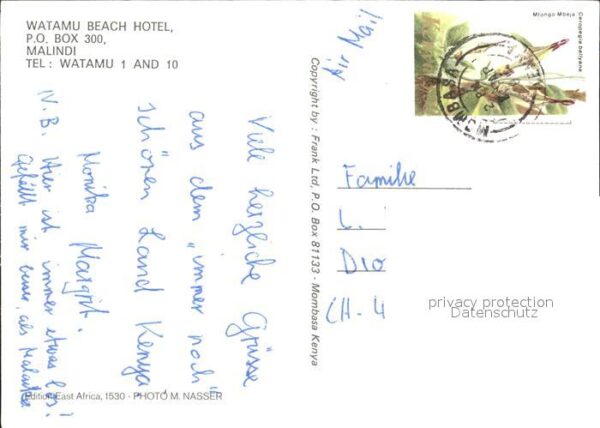 WATAMU BEACH HOTEL,
P.O. BOX 300,
MALINDI
TEL: WATAMU 1 AND 10
Air Mail
Mtongo Mbeja
Ceropegia ballyana
MOMBASA
Viele herzliche Grüsse
aus dem „immer noch"
schönen Land Kenya,
Monika Margrit.
N.B. Hier ist immer etwas los!
Gefällt mir besser, als
Copyright by: Frank Ltd, P.O. Box 81133 - Mombasa Kenya
Familie
L.
Dio
CH-4
privacy protection
Datenschutz
Edition East Africa, 1530 - PHOTO M. NASSER